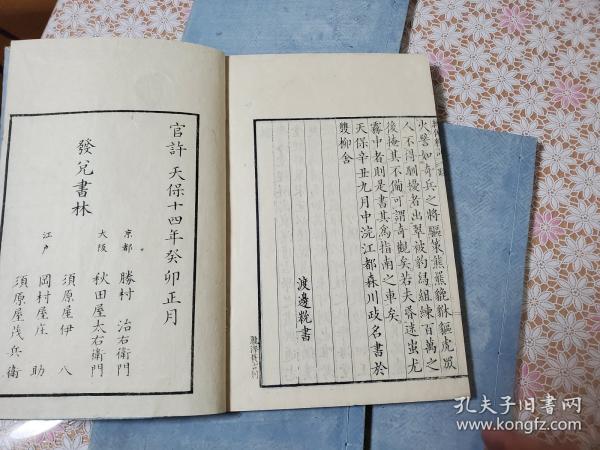 火譬如奇兵之將驅策熊羆貔貅貙虎以
人不得馴擾者出翠被豹舄組練百萬之
後掩其不備可謂奇觀矣若夫昏迷蚩尤
霧中者則是書其爲指南之車矣
天保辛丑九月中浣江都森川政名書於
雙柳舍
渡邊
書
官許 天保十四年癸卯正月
發兌書林
京都 勝村 治右衞門
大阪 秋田屋太右衞門
江戸 須原屋伊八
岡村屋庄助
須原屋茂兵衞
孔夫子旧书网
www.kongfz.com